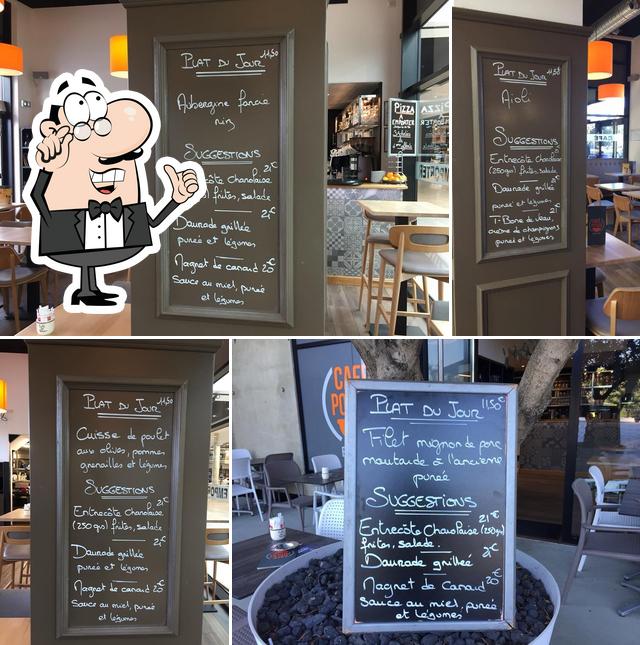 PLAT DU JOUR 11,50
Aubergine farcie
riz
SUGGESTIONS
21€
Entrecôte charolaise
frites, salade
21€
Daurade grillée
purée et légumes
Magret de canard 20€
Sauce au miel, purée
et légumes
PIZZA
A
EMPORTER
PLAT DU JOUR 11,50
Aïoli
SUGGESTIONS
21€
Entrecôte charolaise
(250grs) frites, salade
21€
Daurade grillée
purée et légumes
21€
T-Bone de veau,
crème de champignons
purée et légumes
PLAT DU JOUR 11,50
Cuisse de poulet
aux olives, pommes
grenailles et légumes
SUGGESTIONS
21€
Entrecôte charolaise
(250grs) frites, salade
21€
Daurade grillée
purée et légumes
Magret de canard 20€
Sauce au miel, purée
et légumes
CAFE
PO
PLAT DU JOUR 11,50€
Filet mignon de porc
moutarde à l'ancienne
purée
SUGGESTIONS
21€
Entrecôte Charolaise (250grs)
frites, salade.
21€
Daurade grillée
Magret de Canard 20€
Sauce au miel, purée
et légumes